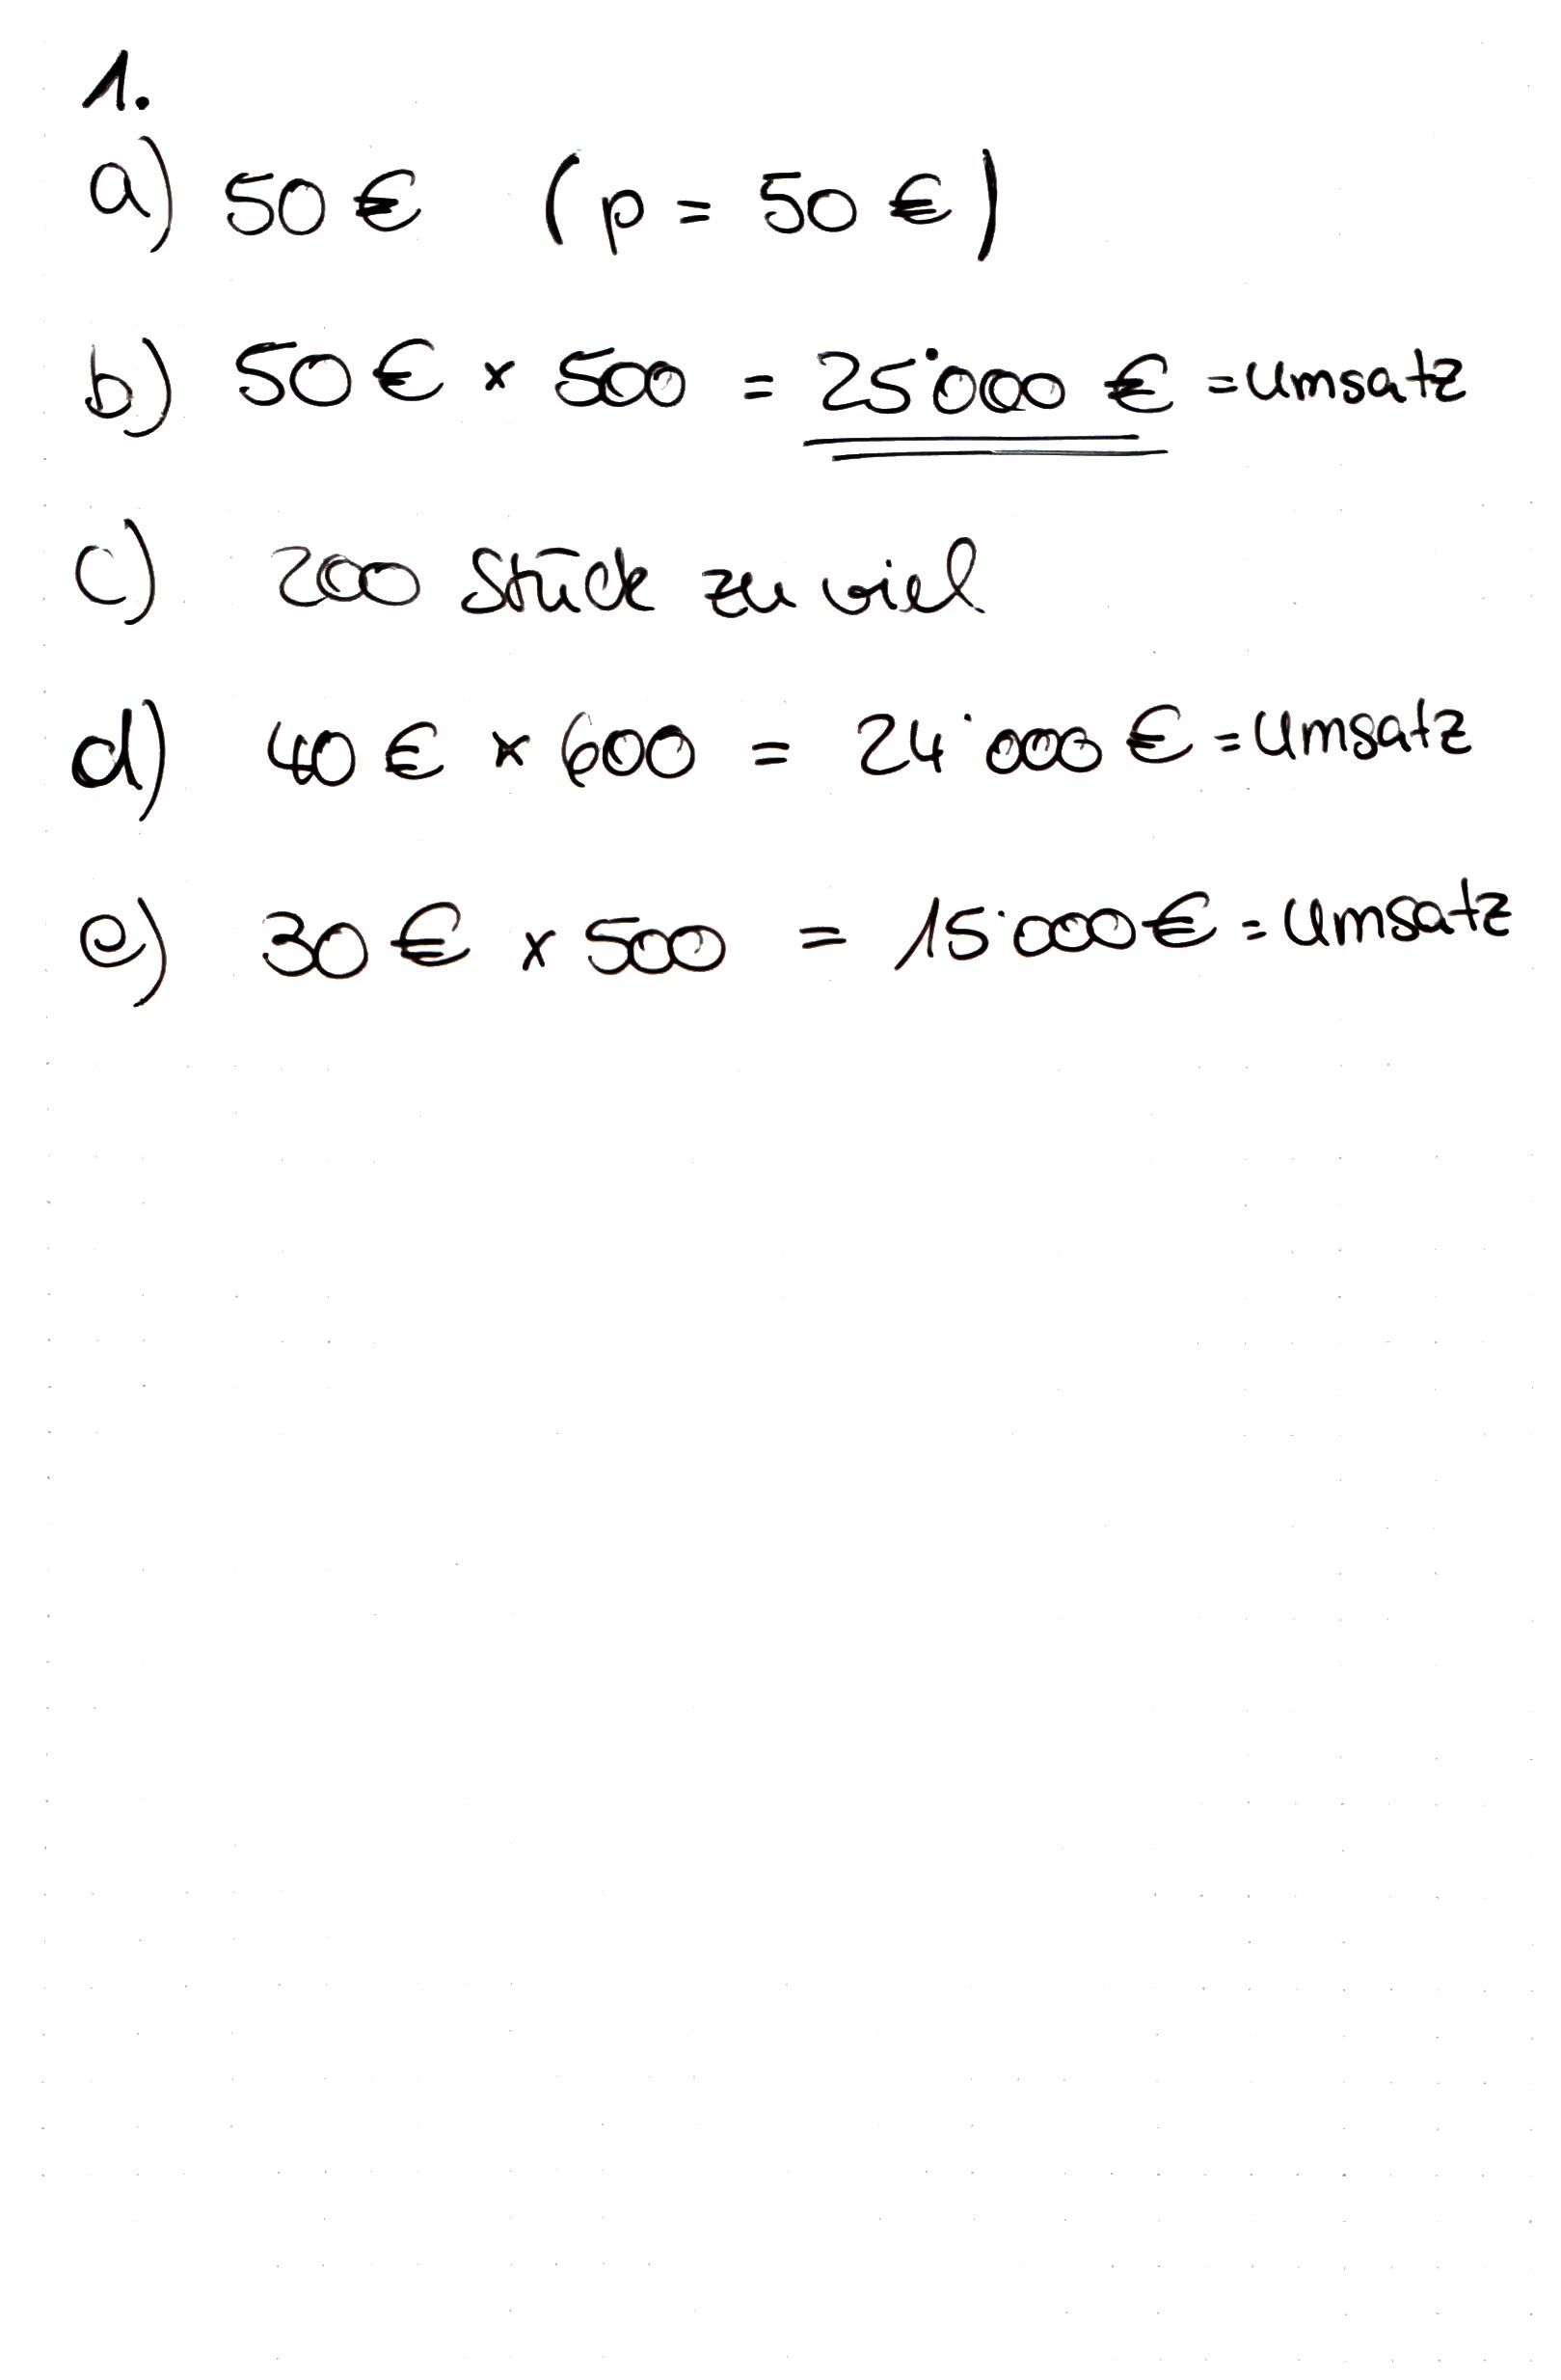 1.
a) 50 € (p = 50 €)
b) 50 € x 500 = 25˙000 € = Umsatz
c) 200 Stück zu viel
d) 40 € x 600 = 24˙000 € = Umsatz
e) 30 € x 500 = 15˙000 € = Umsatz